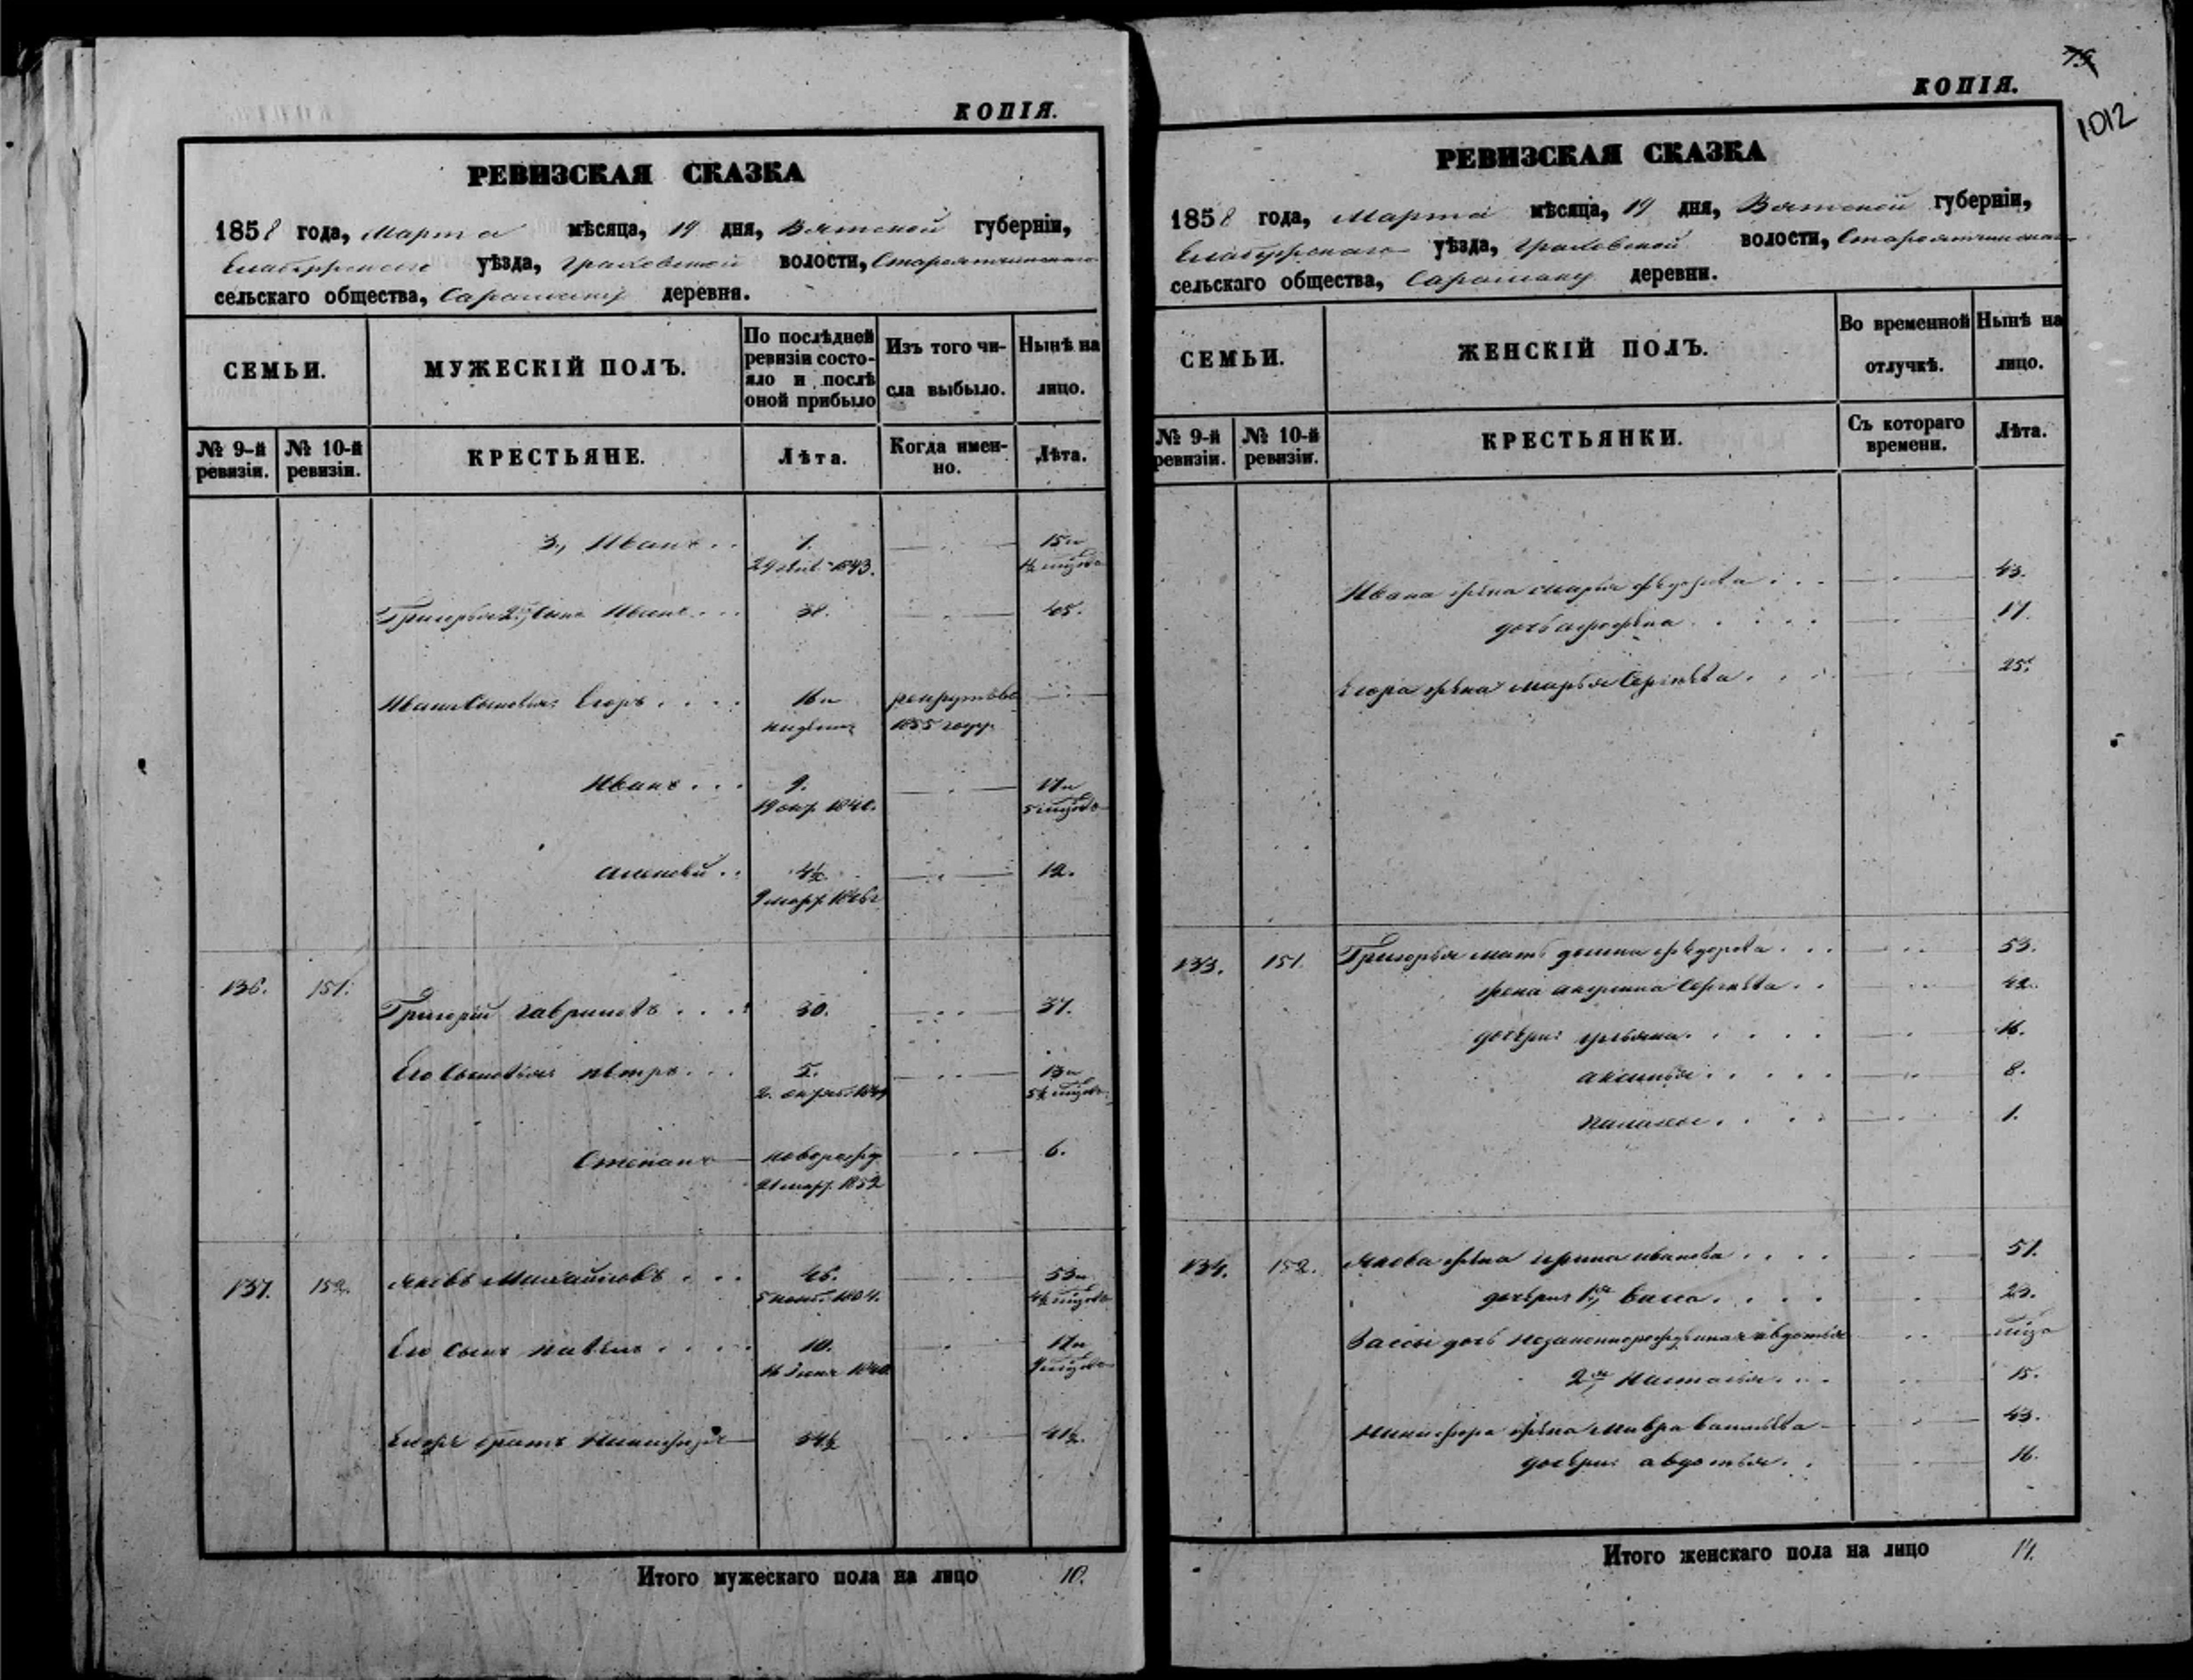 КОПІЯ.
РЕВИЗСКАЯ СКАЗКА
1858 года, Марта мѣсяца, 19 дня, Вятской губерніи,
Елабужскаго уѣзда, Граховской волости,
сельскаго общества, деревня.
СЕМЬИ.
МУЖЕСКІЙ ПОЛЪ.
По послѣдней
ревизіи состо-
яло и послѣ
оной прибыло
Изъ того чи-
сла выбыло.
Нынѣ на
лицо.
№ 9-й
ревизіи.
№ 10-й
ревизіи.
КРЕСТЬЯНЕ.
Лѣта.
Когда имен-
но.
Лѣта.
3., Иванъ . . 1. 15 и
1843.
Григорья 2й, сынъ Иванъ . . . 38. 45.
Ивана сыновья: Егоръ . . . . 16 и рекрутовъ
1855 году
Иванъ . . . 9. 17 и
19 окт. 1840. 5 мѣсяцовъ
Алексѣй . . 4½. 12.
9 мар. 1846
136. 151. Григорій Гавриловъ . . . . 30. 37.
Его сыновья: Петръ . . . 5. 13 и
2. 5½ мѣсяцовъ
Степанъ новорожд 6.
21 мар. 1852
137. 152. Яковъ Михайловъ . . . 46. 53 и
5 нояб. 1804. 4½ мѣсяцовъ
Его сынъ Павелъ . . . . 10. 17 и
16 Іюня 1840 9 мѣсяцовъ
братъ Никифоръ 34½ 41½.
Итого мужескаго пола на лицо 10.
75
КОПІЯ.
1012
РЕВИЗСКАЯ СКАЗКА
1858 года, Марта мѣсяца, 19 дня, Вятской губерніи,
Елабужскаго уѣзда, Граховской волости,
сельскаго общества, деревни.
СЕМЬИ.
ЖЕНСКІЙ ПОЛЪ.
Во временной
отлучкѣ.
Нынѣ на
лицо.
№ 9-й
ревизіи.
№ 10-й
ревизіи.
КРЕСТЬЯНКИ.
Съ котораго
времени.
Лѣта.
Ивана жена Марья Ѳедорова . . . 43.
дочь 17.
Егора жена Марья Сергѣева . . . 25.
133. 151. Григорья мать Домна Ѳедорова . . . 53.
жена Акулина Сергѣева . . 42.
дочери: Ульяна . . . . 16.
Аксинья . . . . . 8.
Палагея . . . . 1.
134. 152. Якова жена Ирина Иванова . . . . 51.
дочери: 1я, Васса . . . . 23.
Вассы дочь незаконнорожденная Авдотья
2я, Настасья . . . 15.
Никифора жена Мавра Васильева 43.
дочери: Авдотья . . 16.
Итого женскаго пола на лицо 14.